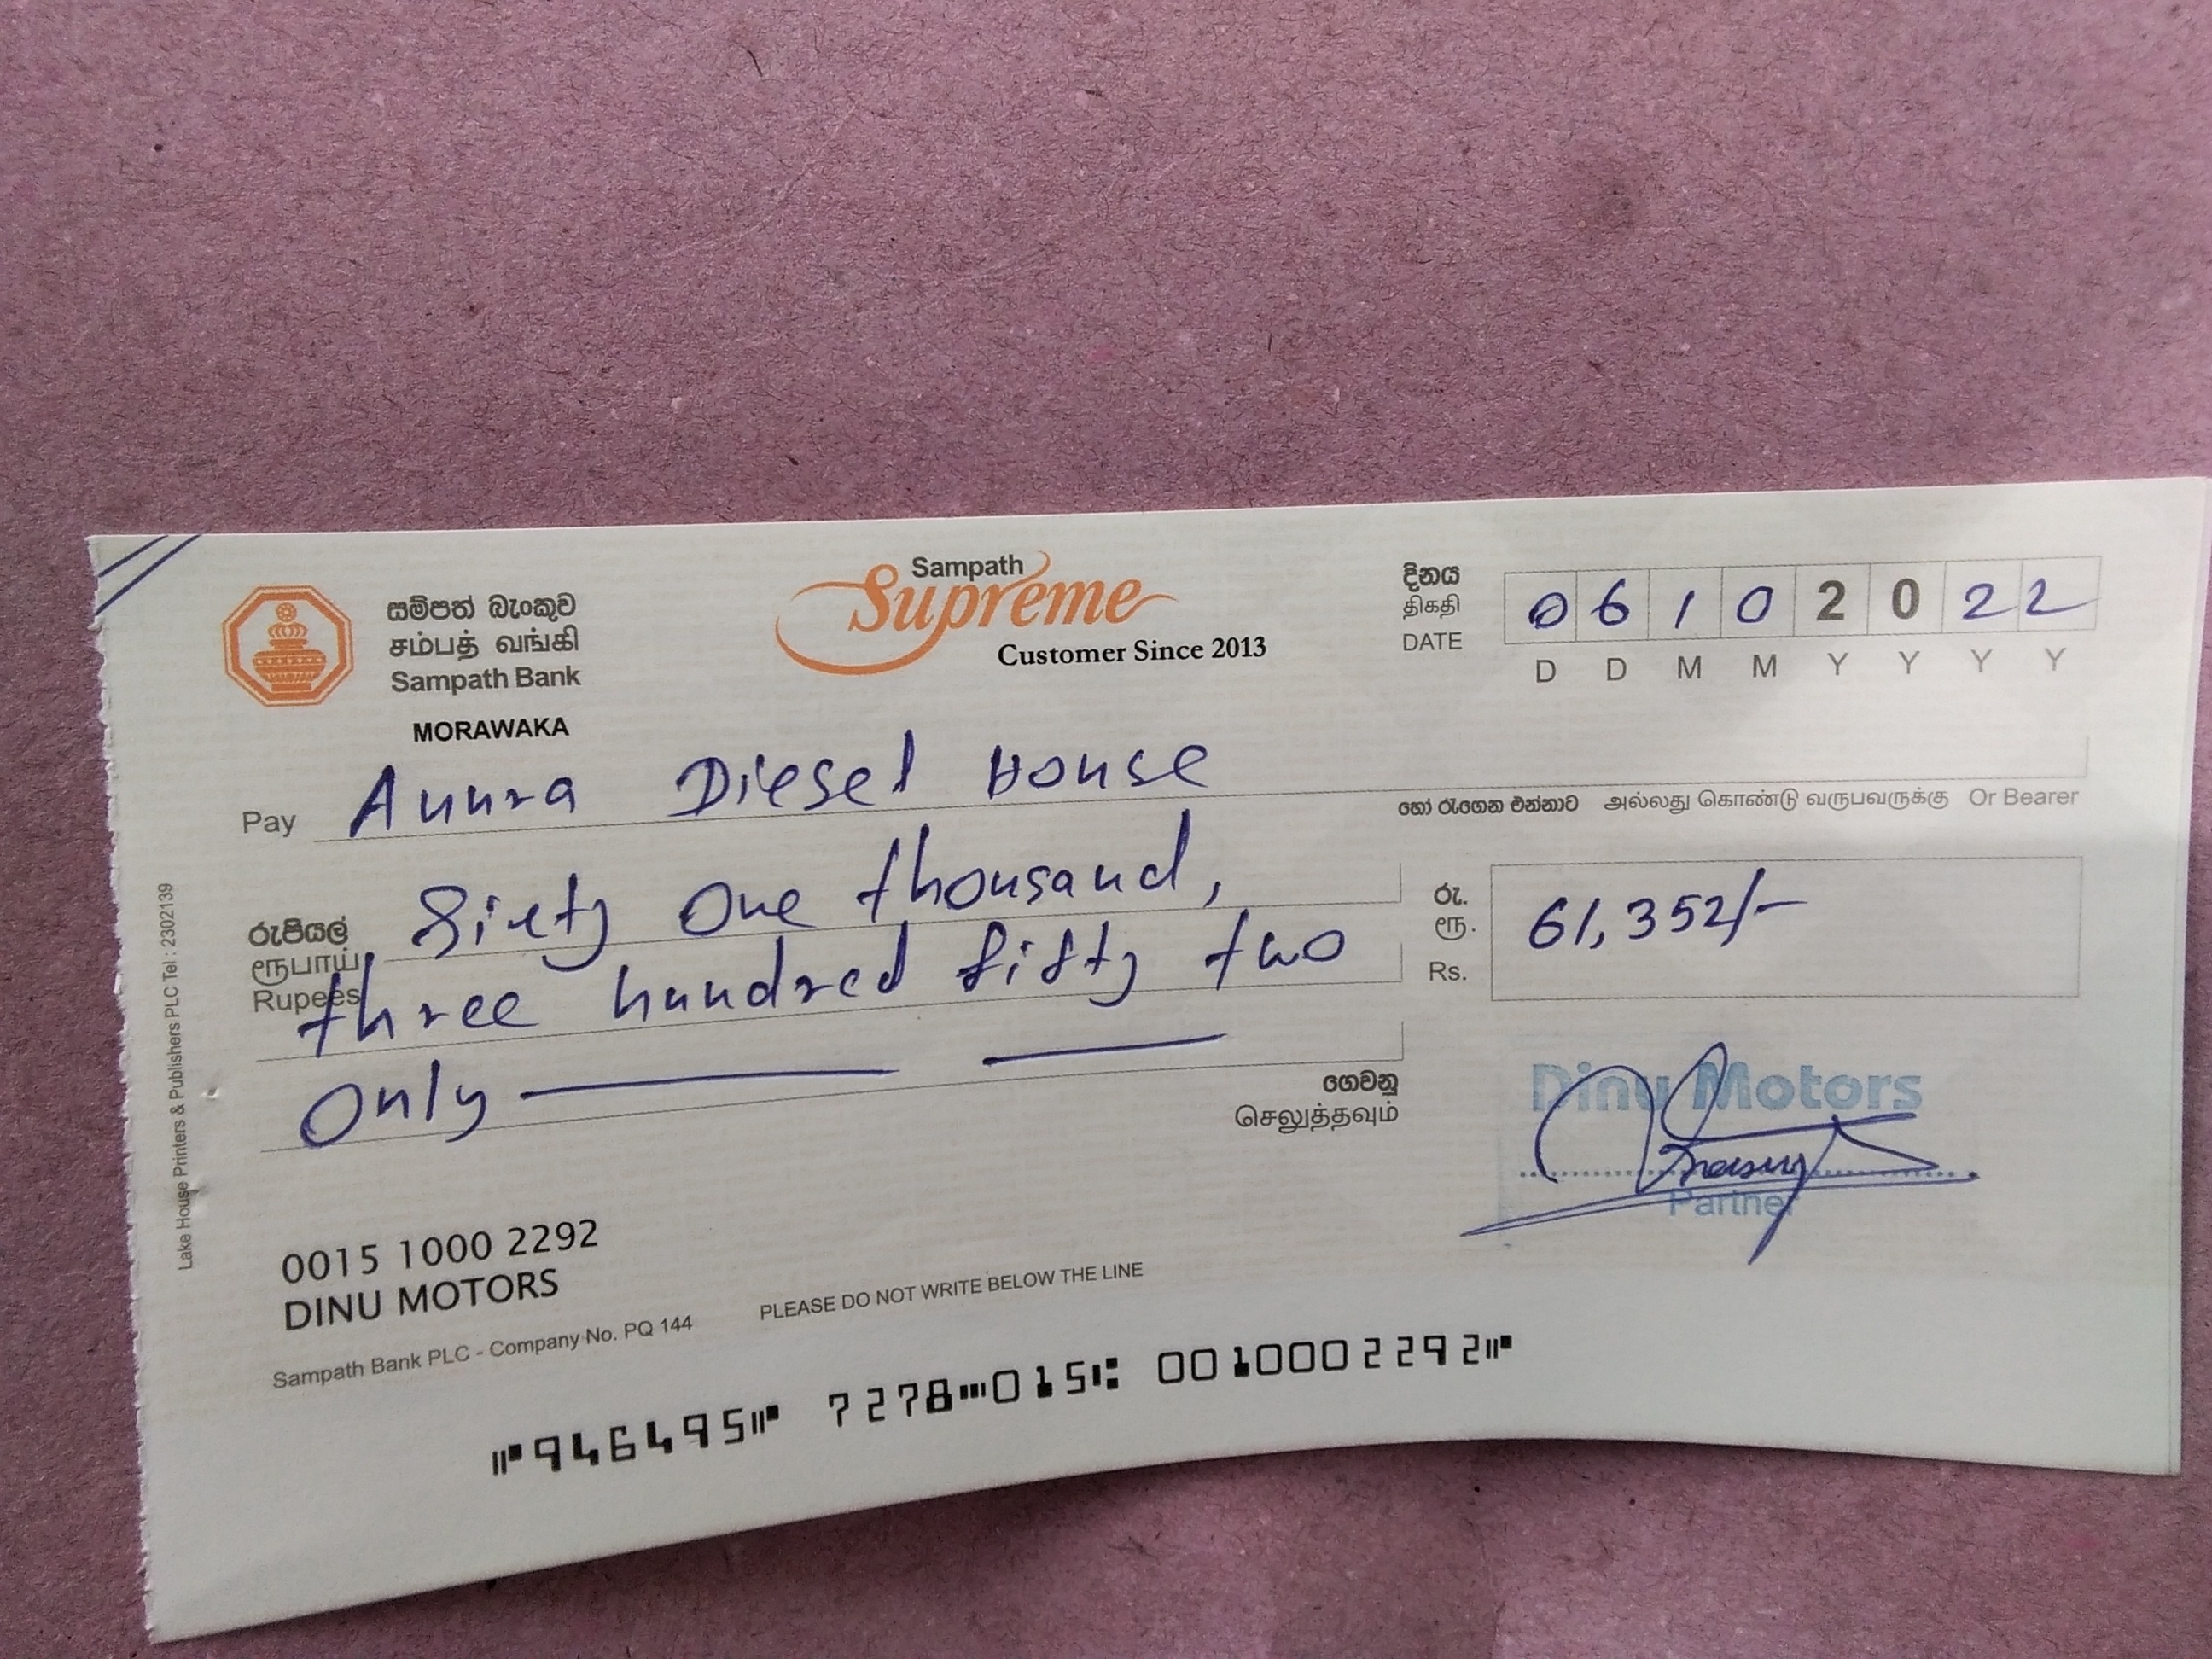 සම්පත් බැංකුව
சம்பத் வங்கி
Sampath Bank
MORAWAKA
Sampath
Supreme
Customer Since 2013
දිනය
திகதி
DATE
0 6 1 0 2 0 2 2
D D M M Y Y Y Y
Pay Anura Diesel House
හෝ රැගෙන එන්නාට அல்லது கொண்டு வருபவருக்கு Or Bearer
රුපියල්
ரூபாய்
Rupees
Sixty One thousand,
three hundred fifty two
Only
රු.
ரூ.
Rs.
61,352/-
ගෙවනු
செலுத்தவும்
Dinu Motors
Partner
0015 1000 2292
DINU MOTORS
Sampath Bank PLC - Company No. PQ 144
PLEASE DO NOT WRITE BELOW THE LINE
⑈946495⑈ 7278⑉015⑆ 0010002292⑈
Lake House Printers & Publishers PLC Tel : 2302139